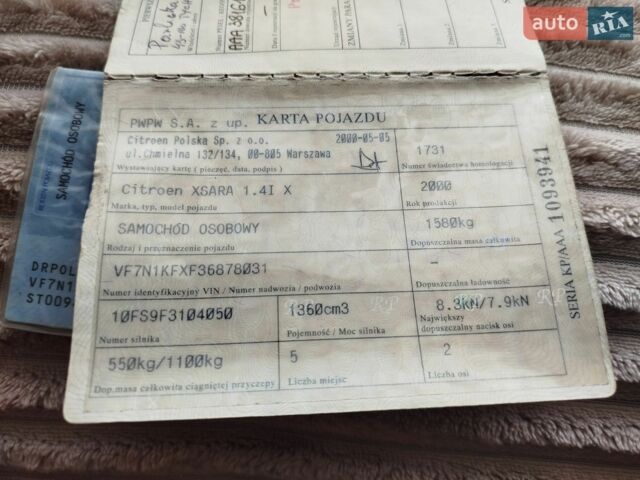 auto RIA.com
AAA
ZMIANY PARA
Zmiana 1
Zmiana 2
SAMOCHÓD OSOBOWY
DRPOL
VF7N1
ST009
PWPW S.A. z up. KARTA POJAZDU
Citroen Polska Sp. z o.o. 2000-05-05
ul.Chmielna 132/134, 00-805 Warszawa
Wystawiający kartę (pieczęć, data, podpis)
1731
Numer świadectwa homologacji
Citroen XSARA 1.4I X
Marka, typ, model pojazdu
2000
Rok produkcji
SAMOCHÓD OSOBOWY
Rodzaj i przeznaczenie pojazdu
1580kg
Dopuszczalna masa całkowita
VF7N1KFXF36878031
Numer identyfikacyjny VIN / Numer nadwozia / podwozia
-
Dopuszczalna ładowność
10FS9F3104050
Numer silnika
1360cm3
Pojemność / Moc silnika
8.3kN/7.9kN
Największy
dopuszczalny nacisk osi
550kg/1100kg
Dop.masa całkowita ciągniętej przyczepy
5
Liczba miejsc
2
Liczba osi
SERIA KP/AAA 1093941